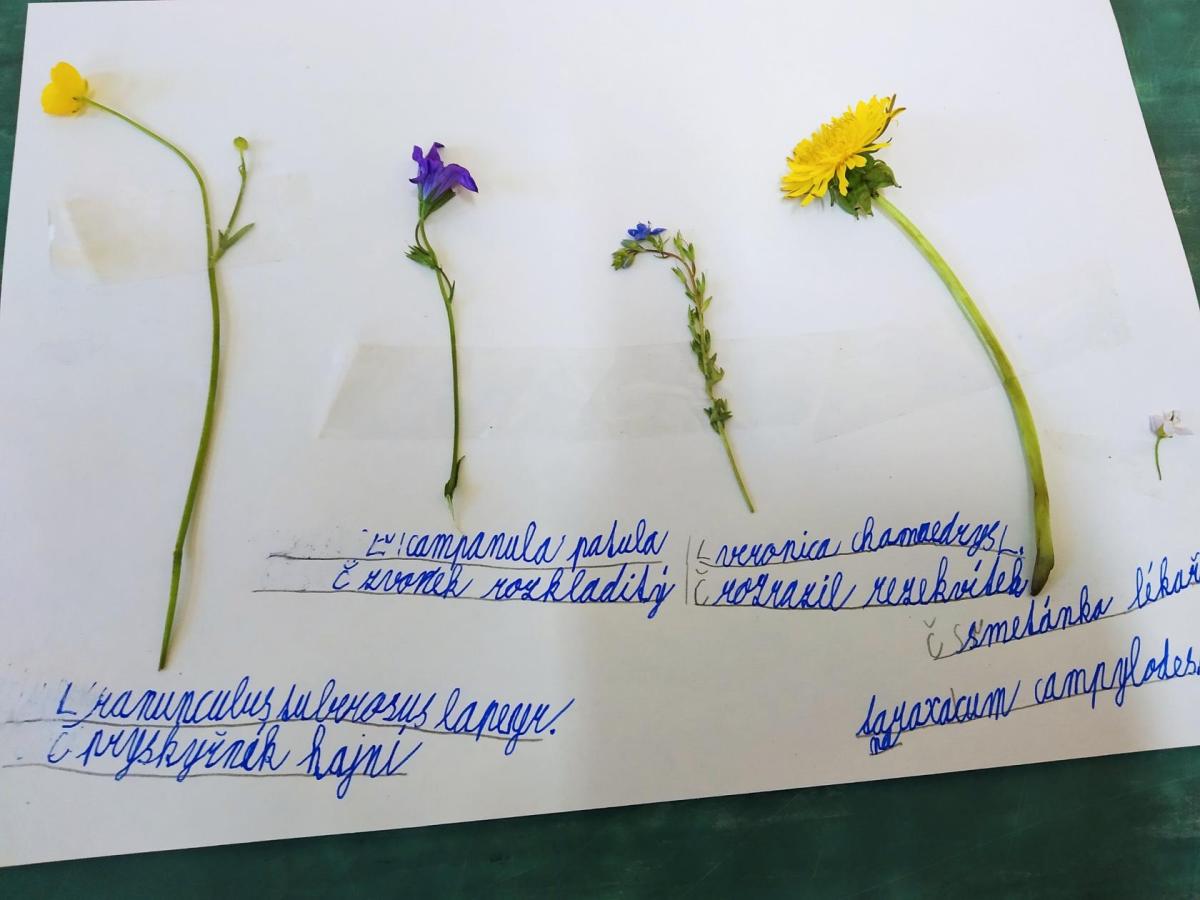 L campanula patula
Č zvonek rozkladitý
L veronica chamaedrys L.
Č rozrazil rezekvítek
Č smetánka lékař
taraxacum campylodes
L ranunculus tuberosus lapeyr.
Č pryskyřněk hajní